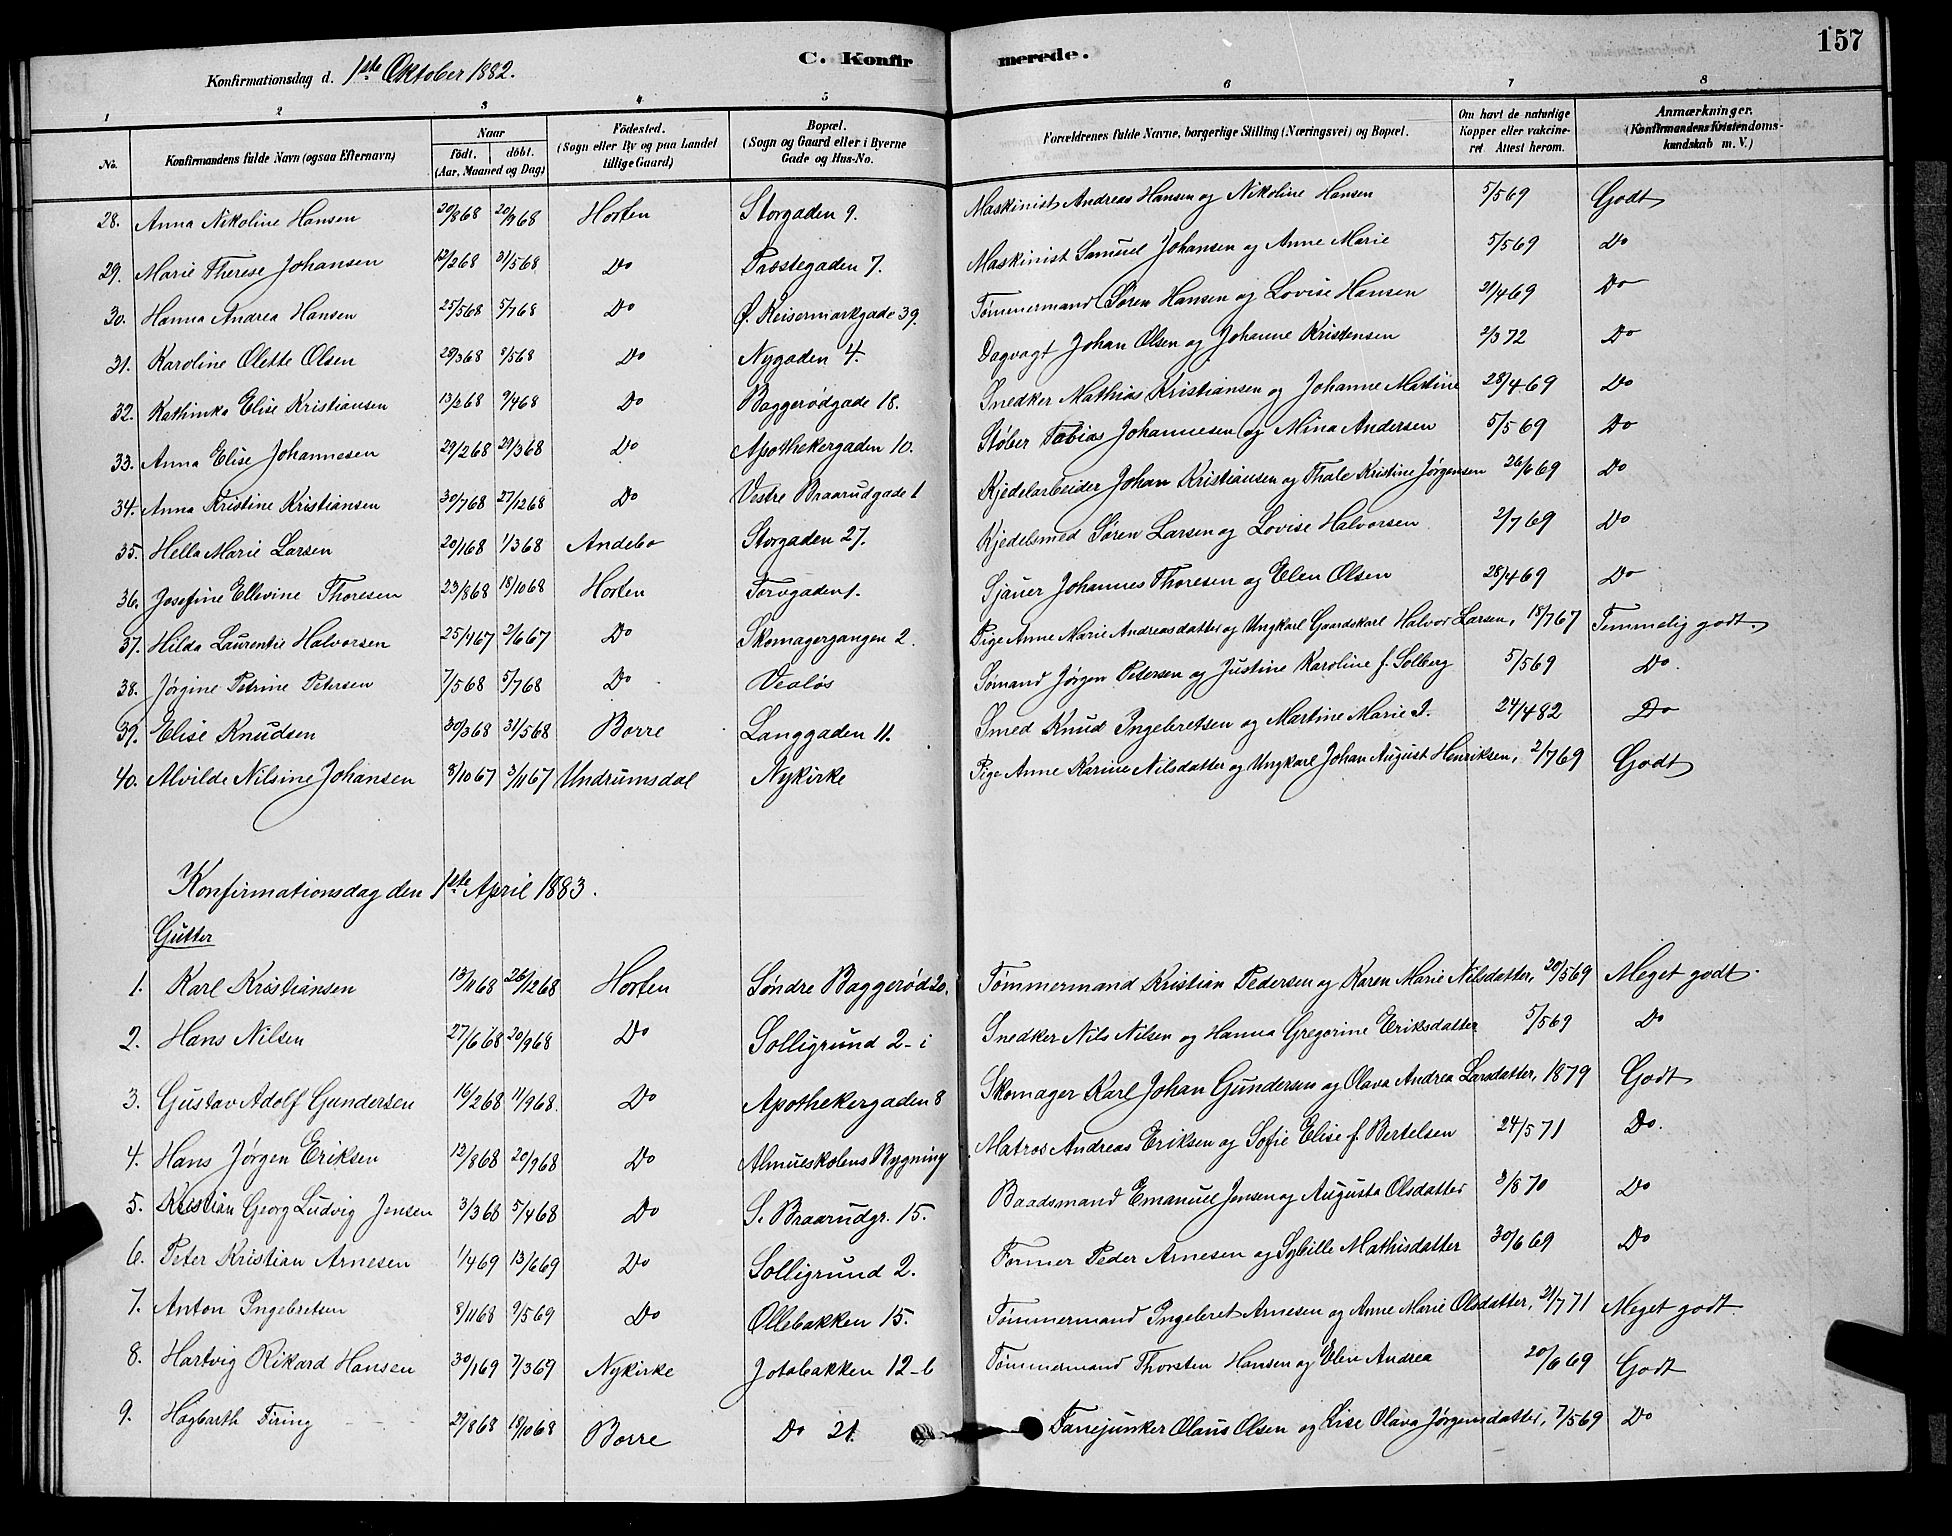 157
Konfirmationsdag d. 1ste Oktober 1882.
C. Konfirmerede.
1 2 3 4 5 6 7 8
No. Konfirmandens fulde Navn (ogsaa Efternavn) Naar Födt. döbt. (Aar, Maaned og Dag) Födested. (Sogn eller By og paa Landet tillige Gaard) Bopæl. (Sogn og Gaard eller i Byerne Gade og Hus-No. Forældrenes fulde Navne, borgerlige Stilling (Næringsvei) og Bopæl. Om havt de naturlige Kopper eller vakcineret. Attest herom. Anmærkninger. (Konfirmandens Kristendomskundskab m. V.)
28. Anna Nikoline Hansen 20/8 68 20/9 68 Horten Storgaden 9. Maskinist Andreas Hansen og Nikoline Hansen 5/5 69 Godt
29. Marie Therese Johansen 12/2 68 31/5 68 Do Præstegaden 7. Maskinist Samuel Johansen og Anne Marie 5/5 69 Do
30. Hanna Andrea Hansen 25/5 68 5/7 68 Do Ø. Keisermarkgade 39. Tømmermand Søren Hansen og Lovise Hansen 21/4 69 Do
31. Karoline Olette Olsen 29/3 68 /5 68 Do Nygaden 4. Dagvagt Johan Olsen og Johanne Kristensen 2/3 72 Do
32. Kathinka Elise Kristiansen 13/2 68 9/4 68 Do Baggerødgade 18. Snedker Mathias Kristiansen og Johanne Martine 28/4 69 Do
33. Anna Elise Johannesen 29/2 68 29/3 68 Do Apothekergaden 10. Støber Tobias Johannesen og Mina Andersen 5/5 69 Do
34. Anna Kristine Kristiansen 30/7 68 27/12 68 Do Vestre Braarudgade 1 Kjedelarbeider Johan Kristiansen og Thale Kristine Jørgensen 26/6 69 Do
35. Hella Marie Larsen 20/1 68 1/3 68 Andebo Storgaden 27. Kjedelsmed Søren Larsen og Lovise Halvorsen 2/7 69 Do
36. Josefine Ellevine Thoresen 23/8 68 18/10 68 Horten Torvgaden 1. Sjauer Johannes Thoresen og Elen Olsen 28/4 69 Do
37. Hilda Laurentie Halvorsen 25/4 67 2/6 67 Do Skomagergangen 2. Pige Anne Marie Andreasdatter og Ungkarl Gaardskarl Halvor Larsen, 18/7 67 Temmelig godt.
38. Jørgine Petrine Petersen 7/5 68 5/7 68 Do Vealøs Sømand Jørgen Petersen og Justine Karoline f. Solberg 5/5 69 Do.
39. Elise Knudsen 30/3 68 31/5 68 Borre Langgaden 11. Smed Knud Ingebretsen og Martine Marie I. 24/4 82 Do
40. Alvilde Nilsine Johansen 8/10 67 3/11 67 Undrumsdal Nykirke Pige Anne Karine Nilsdatter og Ungkarl Johan August Henriksen, 2/7 69 Godt
Konfirmationsdag den 1ste April 1883.
Gutter
1. Karl Kristiansen 13/11 68 26/12 68 Horten Søndre Baggerød 20. Tømmermand Kristian Pedersen og Karen Marie Nilsdatter, 20/5 69 Meget godt.
2. Hans Nilsen 27/6 68 20/9 68 Do Solligrund 2-i Snedker Nils Nilsen og Hanna Gregorine Eriksdatter 5/5 69 Do
3. Gustav Adolf Gundersen 16/2 68 11/9 68. Do Apothekergaden 8 Skomager Karl Johan Gundersen og Olava Andrea Larsdatter, 1879 Godt
4. Hans Jørgen Eriksen 12/8 68 20/9 68 Do Almueskolens Bygning Matros Andreas Eriksen og Sofie Elise f. Bertelsen 24/5 71 Do.
5. Kristian Georg Ludvig Jensen 3/3 68 5/4 68 Do S. Braarudgr. 15. Baadsmand Emanuel Jensen og Augusta Olsdatter 3/8 70 Do
6. Peter Kristian Arnesen 1/4 69 13/6 69 Do Solligrund 2. Former Peder Arnesen og Sybille Mathisdatter 30/6 69 Do
7. Anton Ingebretsen 8/11 68 9/5 69 Do Ollebakken 15. Tømmermand Ingebret Arnesen og Anne Marie Olsdatter, 21/7 71 Meget godt.
8. Hartvig Rikard Hansen 30/1 69 7/3 69 Nykirke Jotabakken 12-b Tømmermand Thorsten Hansen og Elin Andrea 20/6 69 Godt
9. Hagbarth Firing 29/8 68 18/10 68 Borre Do 21. Fanejunker Olaus Olsen og Lise Olava Jørgensdatter, 7/5 69 Do